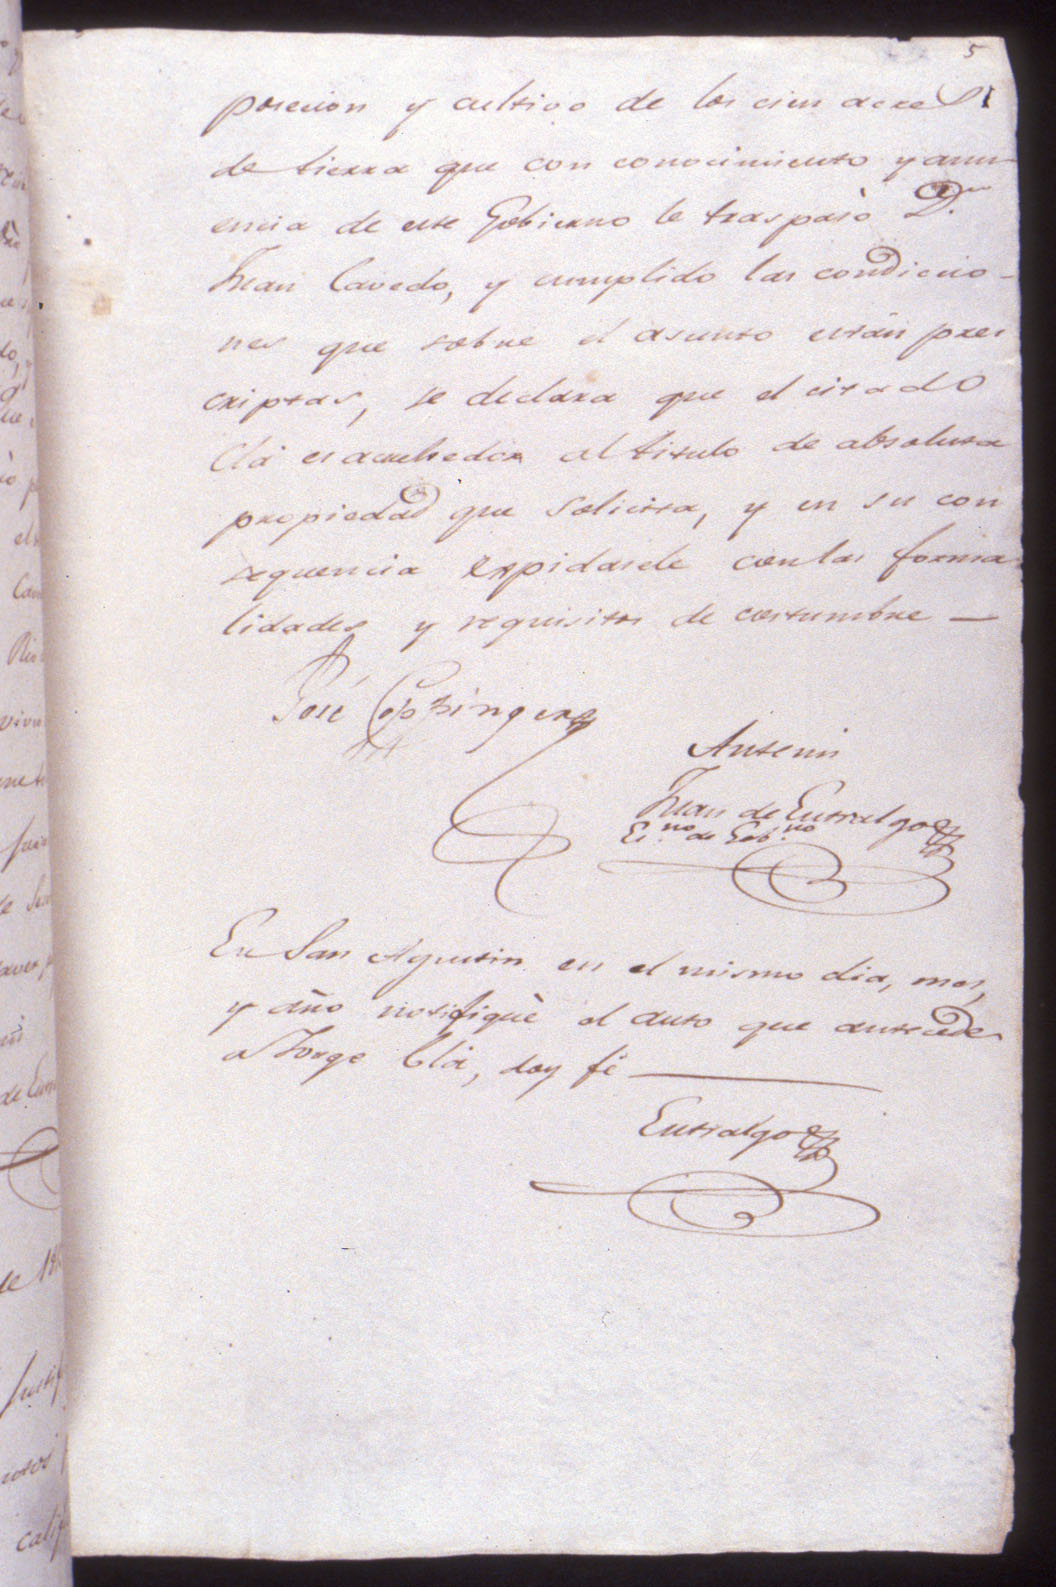 5
posecion y cultivo de los cien acres
de tierra que con conocimiento y anu-
encia de este Gobierno le traspasò D.n
Juan Cavedo, y cumplido las condicio-
nes que sobre el asunto están pres
criptas, se declara que el citado
Clà es acrehedor al titulo de absoluta
propiedad que solicita, y en su con
sequencia expidasele con las forma
lidades y requisitos de costumbre —
José Coppinger
Antemi
Juan de Entralgo
Es.no de Gob.no
En San Agustin en el mismo dia, mes,
y año notifiquè el auto que antecede
a Jorge Clà, doy fé —
Entralgo